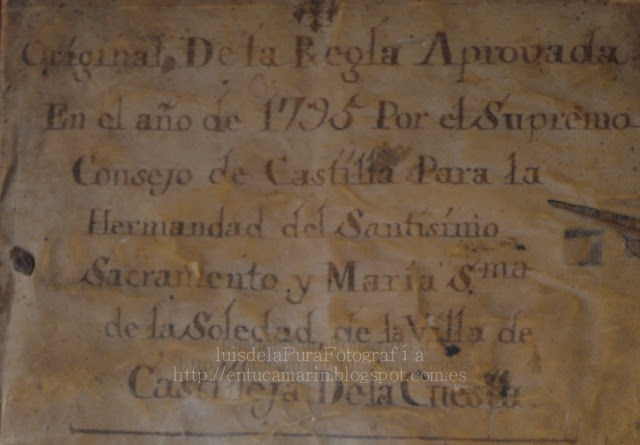 Original De la Regla Aprovada
En el año de 1795 Por el Supremo
Consejo de Castilla Para la
Hermandad del Santisimo
Sacramento y Maria S.ma
de la Soledad, de la Villa de
luisdelaPuraFotografía
http://entucamarin.blogspot.com.es
Castilleja De la Cuesta